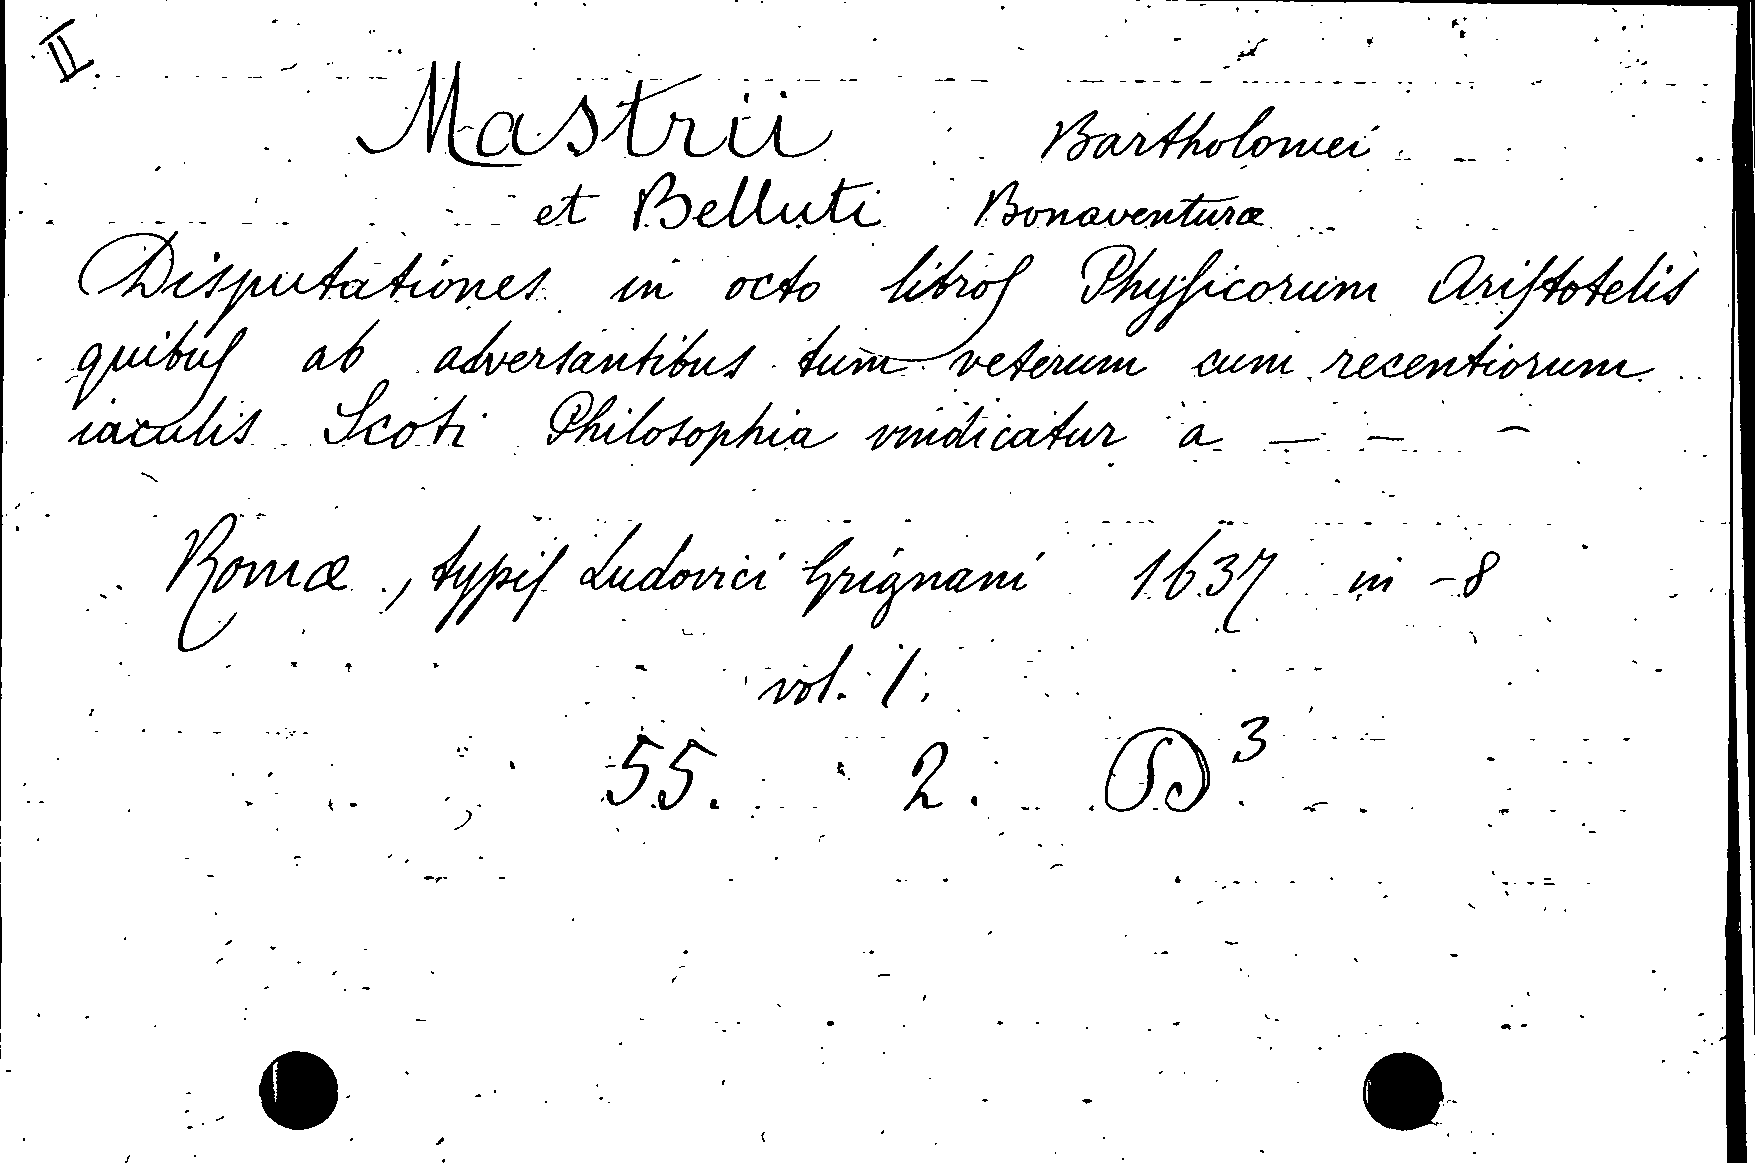 II
Mastrii Bartholomei
et Belluti Bonaventuræ
Disputationes in octo libros Physicorum Aristotelis
quibus ab adversantibus tum veterum cum recentiorum
iaculis Scoti Philosophia vindicatur a — — —
Romæ, typis Ludovici Grignani 1637 in -8
vol. 1.
55. 2. D³